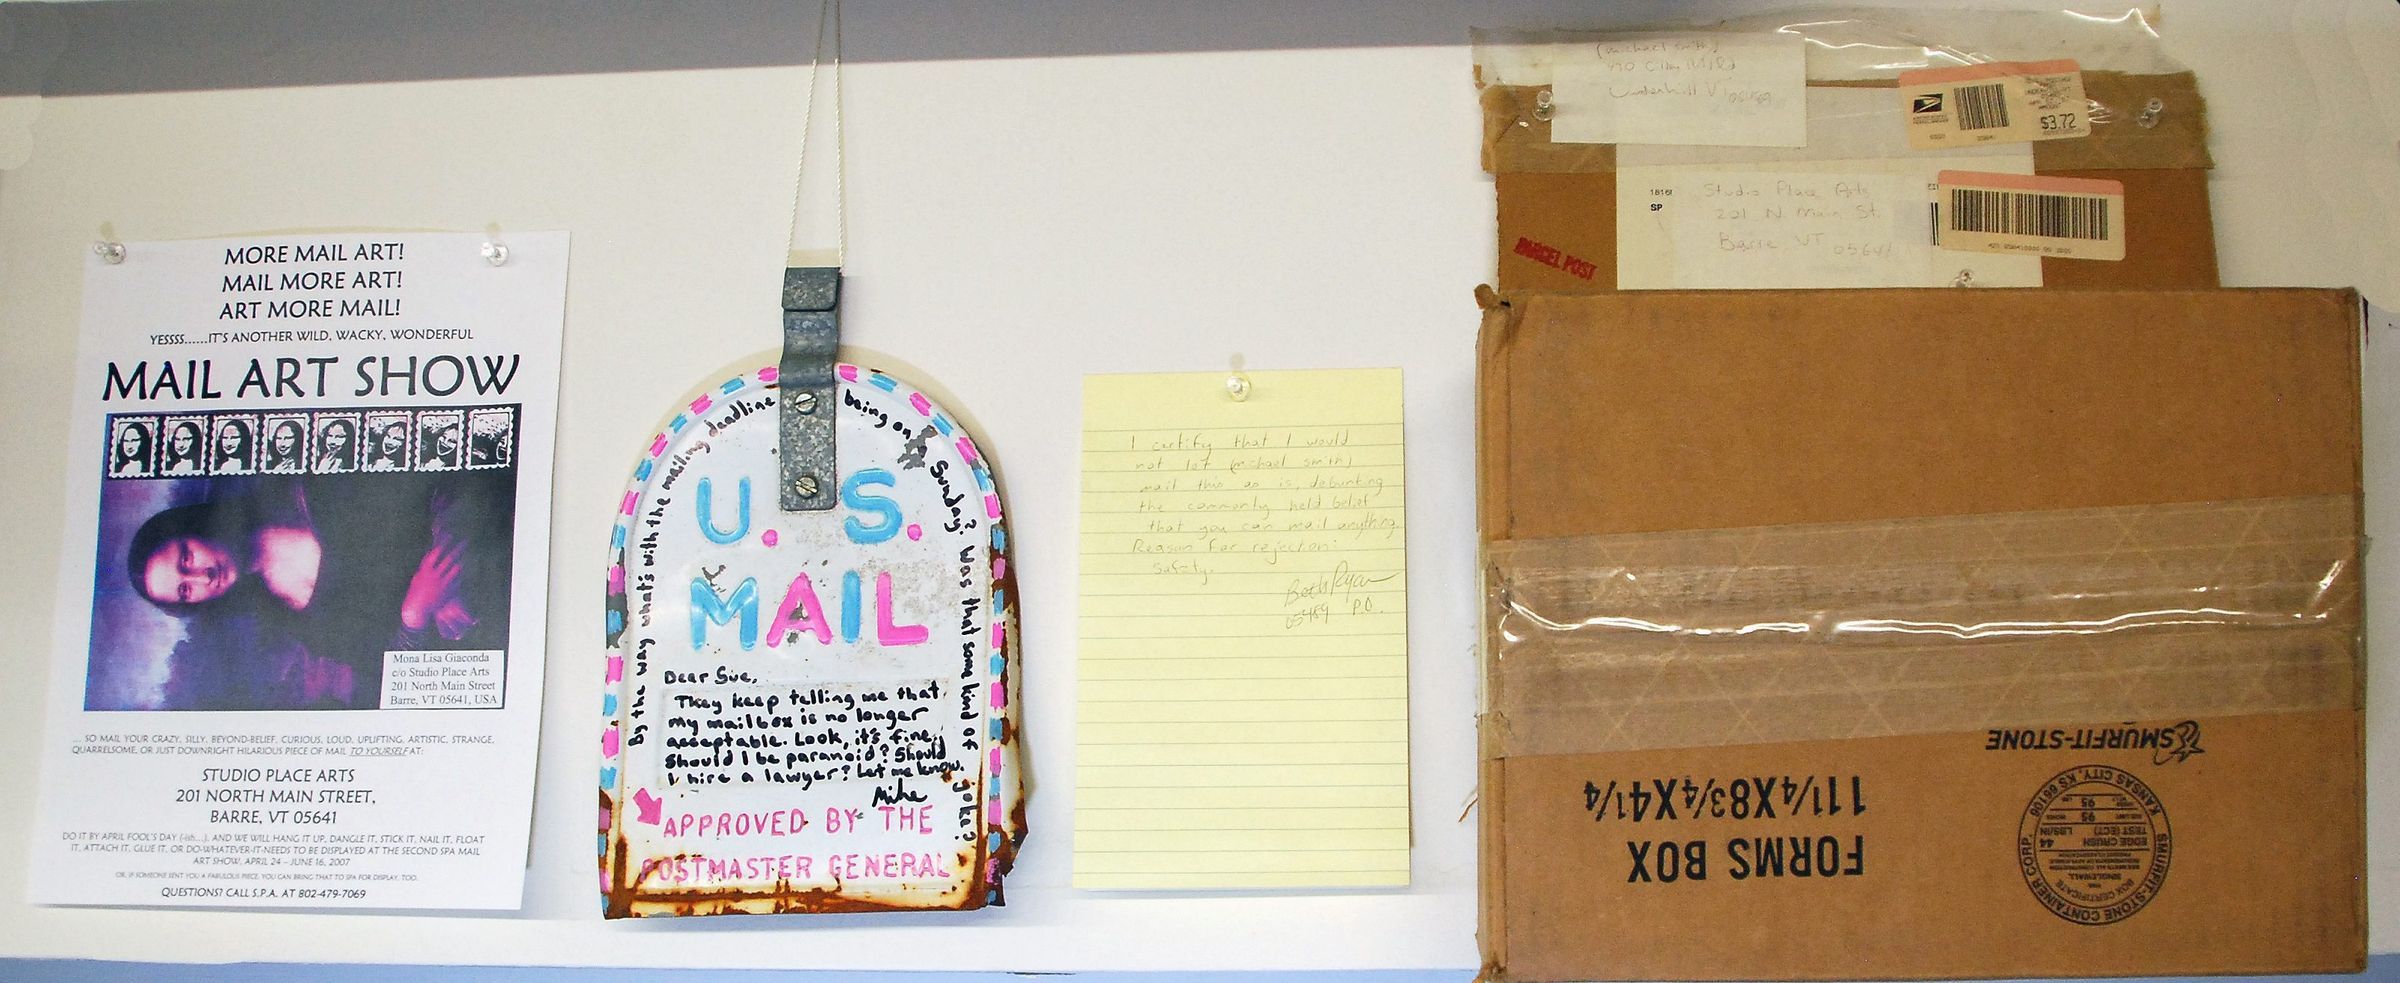 MORE MAIL ART!
MAIL MORE ART!
ART MORE MAIL!
YESSSS......IT'S ANOTHER WILD, WACKY, WONDERFUL
MAIL ART SHOW
Mona Lisa Giaconda
c/o Studio Place Arts
201 North Main Street
Barre, VT 05641, USA
... SO MAIL YOUR CRAZY, SILLY, BEYOND-BELIEF, CURIOUS, LOUD, UPLIFTING, ARTISTIC, STRANGE,
QUARRELSOME, OR JUST DOWNRIGHT HILARIOUS PIECE OF MAIL TO YOURSELF AT:
STUDIO PLACE ARTS
201 NORTH MAIN STREET,
BARRE, VT 05641
DO IT BY APRIL FOOL'S DAY (4th...), AND WE WILL HANG IT UP, DANGLE IT, STICK IT, NAIL IT, FLOAT
IT, ATTACH IT, GLUE IT, OR DO-WHATEVER-IT-NEEDS TO BE DISPLAYED AT THE SECOND SPA MAIL
ART SHOW, APRIL 24 – JUNE 16, 2007
OR, IF SOMEONE SENT YOU A FABULOUS PIECE, YOU CAN BRING THAT TO SPA FOR DISPLAY, TOO.
QUESTIONS? CALL S.P.A. AT 802-479-7069
By the way what's with the mailing deadline being on a Sunday? Was that some kind of joke?
U.S.
MAIL
Dear Sue,
They keep telling me that
my mailbox is no longer
acceptable. Look, it's fine.
Should I be paranoid? Should
I hire a lawyer? Let me know.
Mike
APPROVED BY THE
POSTMASTER GENERAL
I certify that I would
not let (michael smith)
mail this as is, debunking
the commonly held belief
that you can mail anything.
Reason for rejection:
Safety.
Beth Ryan
05489 P.O.
(michael smith)
Underhill VT 05489
$3.72
18161
SP
Studio Place Arts
201 N. Main St.
Barre VT 05641
PARCEL POST
SMURFIT-STONE
11 1/4X8 3/4X4 1/4
FORMS BOX
SMURFIT-STONE CONTAINER CORP.
KANSAS CITY, KS 66106
BOX CERTIFICATE
SINGLEWALL
EDGE CRUSH
TEST (ECT)
44
LBS/IN
95
95